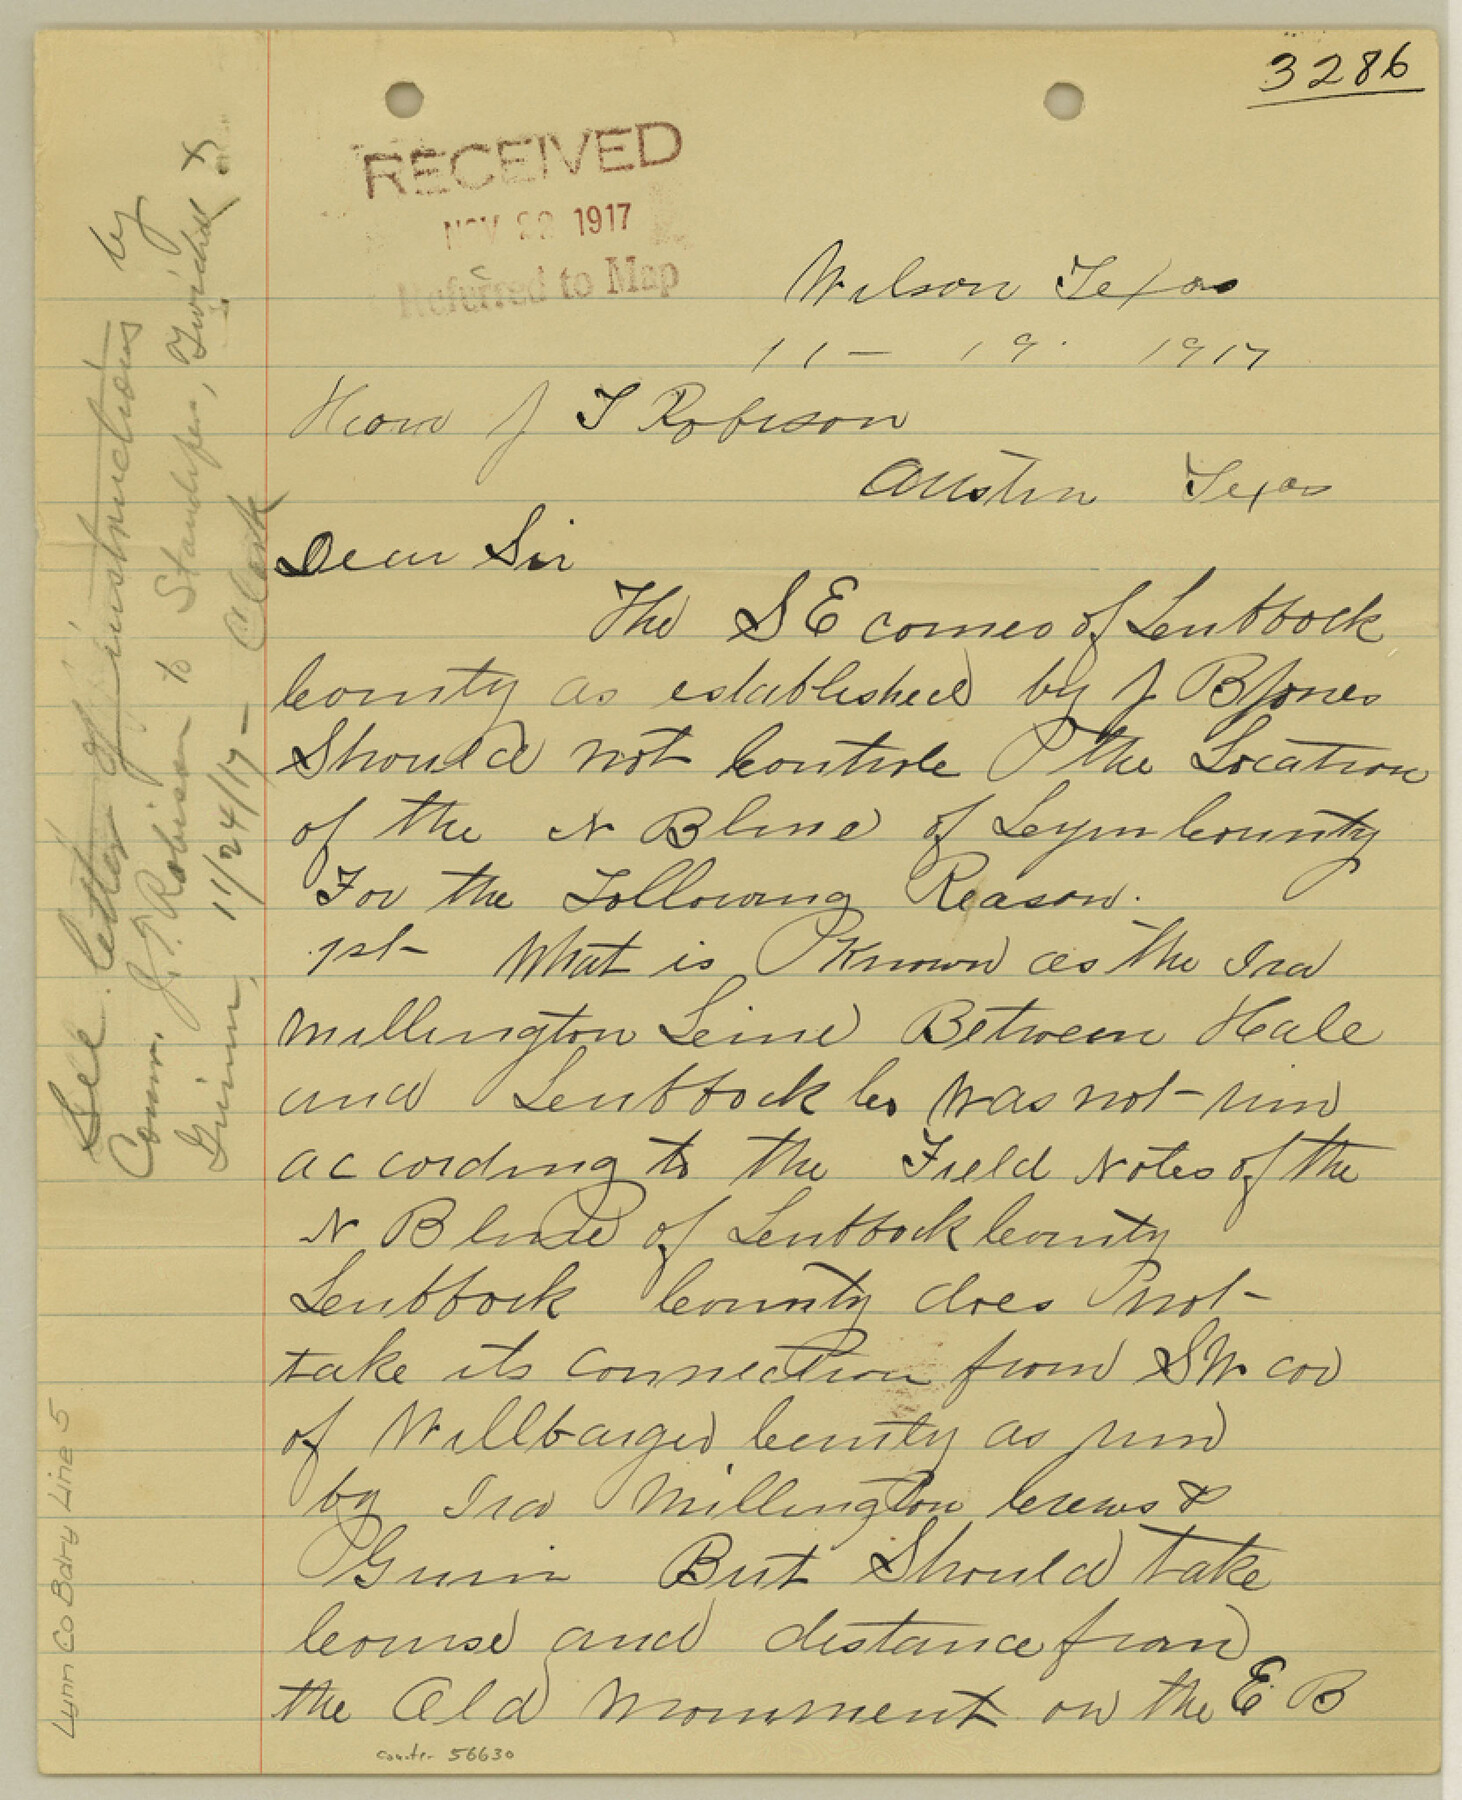 3286
RECEIVED
NOV 22 1917
Referred to Map
Wilson Texas
11 - 19. 1917
Hon J T Robison
Austin Texas
Dear Sir
The S E corner of Lubbock
County as established by J B Jones
Should not Controle the Location
of the N B line of Lynn County
For the Following Reason.
1st What is Known as the Ira
Millington Line Between Hale
and Lubbock Co was not run
according to the Field Notes of the
N B line of Lubbock County
Lubbock County does not
take its connection from S W cor
of Willbarger County as run
by Ira Millington Crews &
Guin But Should take
Course and distance from
the Old Monument on the E B
See letter of instructions by
Comr. J. T. Robison to Standifer, Twichell &
Grimm, 11/24/17 - Clark
Lynn Co Bdry Line 5
counter 56630